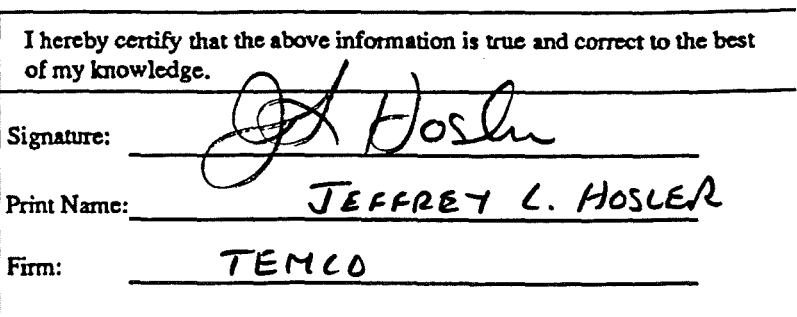 I hereby certify that the above information is true and correct to the best
of my knowledge.
Signature: J L Hosler
Print Name: JEFFREY L. HOSLER
Firm: TEMCO